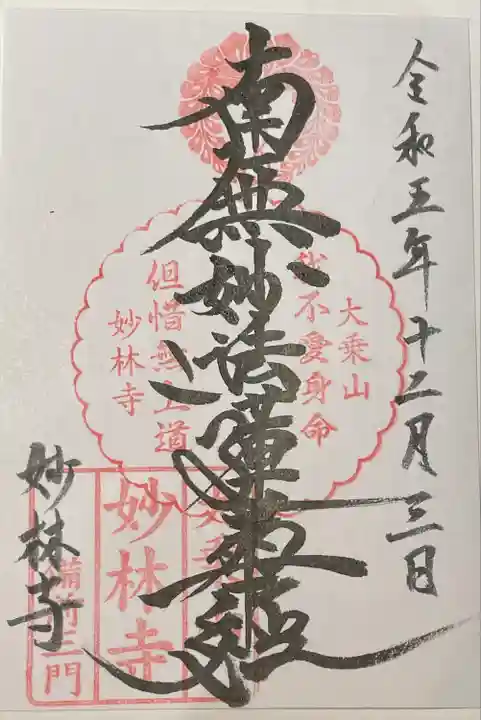 令和五年十二月三日
南無妙法蓮華経
大乗山
我不愛身命
但惜無上道
妙林寺
妙林寺
妙林寺
備前三門